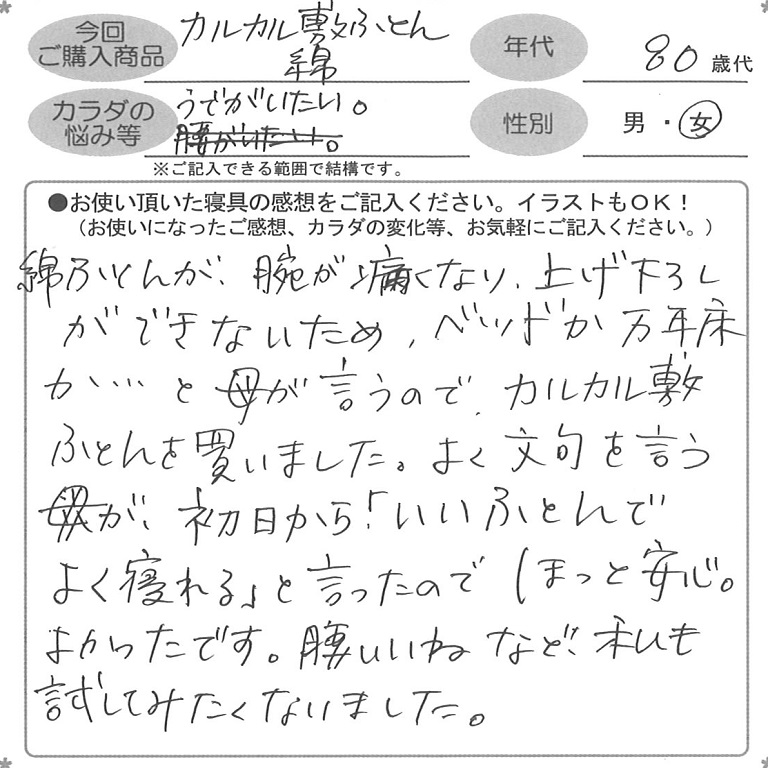 今回
ご購入商品
カルカル敷ふとん
綿
年代
80歳代
カラダの
悩み等
うでがいたい。
腰がいたい。
性別
男・女
※ご記入できる範囲で結構です。
●お使い頂いた寝具の感想をご記入ください。イラストもOK！
（お使いになったご感想、カラダの変化等、お気軽にご記入ください。）
綿ふとんが、腕が痛くなり、上げ下ろし
ができないため、ベッドか万年床
か…と母が言うので、カルカル敷
ふとんを買いました。よく文句を言う
母が、初日から「いいふとんで
よく寝れる」と言ったのでほっと安心。
よかったです。腰いいねなど、私も
試してみたくないました。